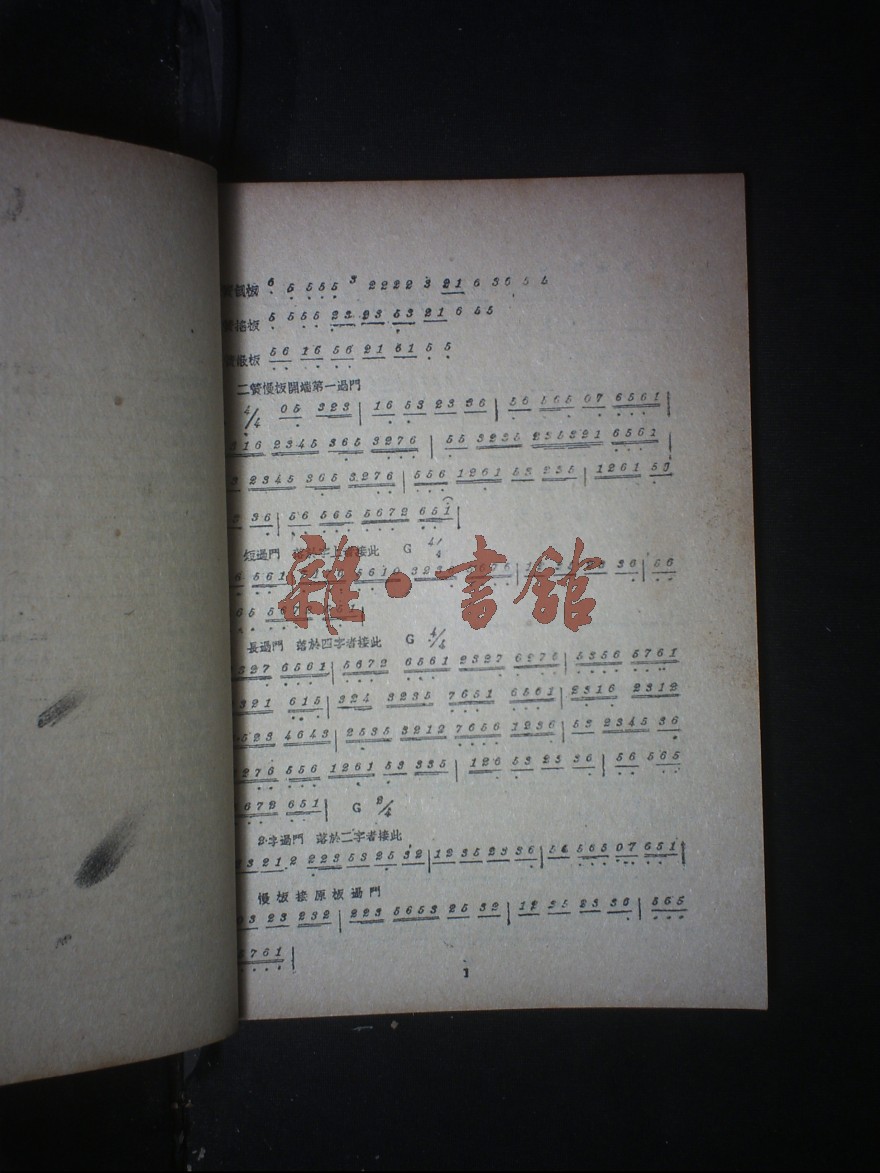 板 6 5 5 5 5 3 2 2 2 2 3 21 6 3 6 5 5
板 5 5 5 5 23 23 53 21 6 5 5
板 56 16 56 21 61 5 5
二簧慢板開端第一過門
4/4 05 323 | 16 53 23 36 | 56 565 07 6561 |
316 2345 365 3276 | 55 3235 235321 6561 |
2345 365 3276 | 556 1261 53 235 | 1261 50
36 | 56 565 5672 651 |
短過門 落於字上者接此 G 4/4
561 36 | 56
65
長過門 落於四字者接此 G 4/4
527 6561 | 5672 6561 2327 6276 | 5356 5761
321 615 | 324 3235 7651 6561 | 2316 2312
523 4643 | 2535 3212 7656 1236 | 53 2345 36
276 556 1261 53 335 | 126 53 23 36 | 56 565
672 651 | G 2/4
2字過門 落於二字者接此
2321 2 223 53 25 32 | 12 35 23 36 | 56 565 07 651 |
慢板接原板過門
03 23 232 | 223 5653 25 32 | 12 35 23 36 | 565
761 |
1
雜·書館